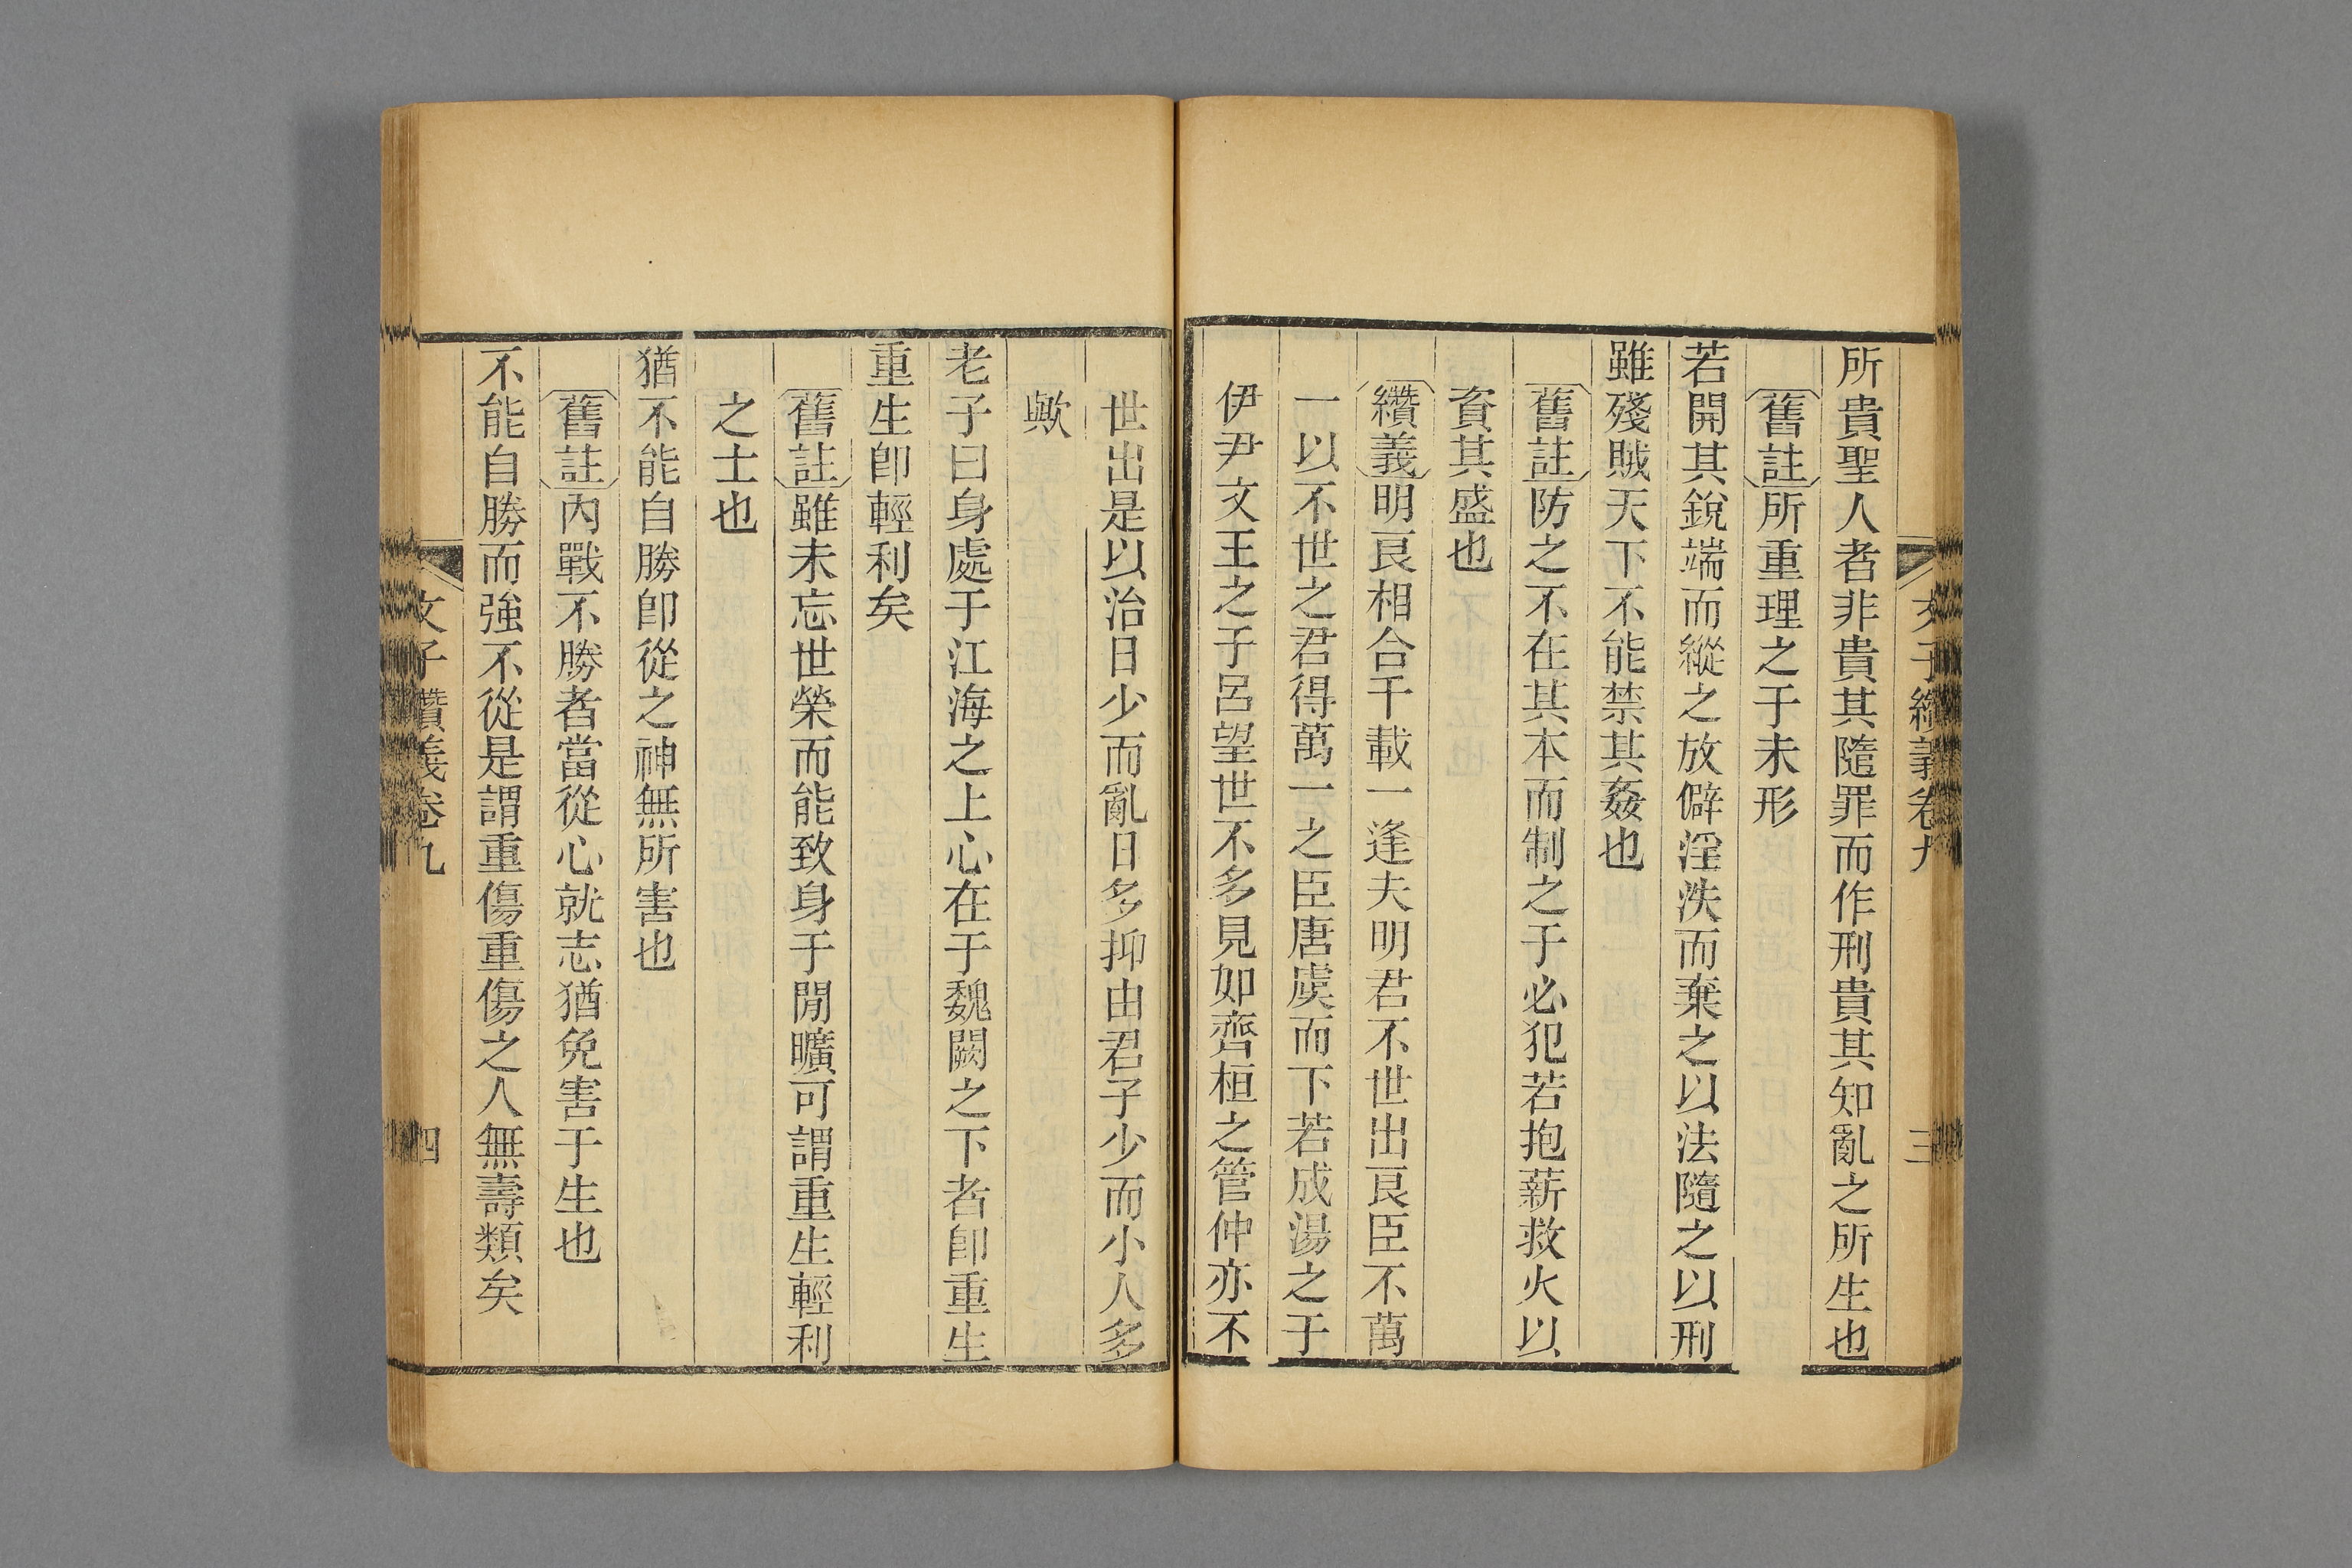 文子纘義卷九 三
所貴聖人者非貴其隨罪而作刑貴其知亂之所生也
舊註所重理之于未形
若開其銳端而縱之放僻淫泆而棄之以法隨之以刑
雖殘賊天下不能禁其姦也
舊註防之不在其本而制之于必犯若抱薪救火以
資其盛也
纘義明良相合千載一逢夫明君不世出良臣不萬
一以不世之君得萬一之臣唐虞而下若成湯之于
伊尹文王之于呂望世不多見如齊桓之管仲亦不
世出是以治日少而亂日多抑由君子少而小人多
歟
老子曰身處于江海之上心在于魏闕之下者卽重生
重生卽輕利矣
舊註雖未忘世榮而能致身于閒曠可謂重生輕利
之士也
猶不能自勝卽從之神無所害也
舊註內戰不勝者當從心就志猶免害于生也
不能自勝而強不從是謂重傷重傷之人無壽類矣
文子纘義卷九 四